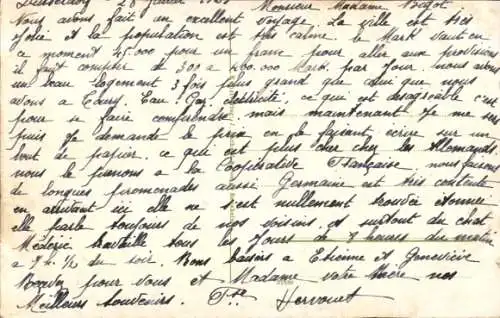 Monsieur Madame
Nous avons fait un excellent voyage. La ville est très
jolie et la population est très calme. le Mark vaut en
ce moment 45.000 pour un franc pour aller aux provisions
il faut compter de 300 a 400.000 Mark. par Jour. nous avons
un beau logement 3 fois plus grand que celui que nous
avons a Tours. Eau Gaz électricité. ce qui est desagreable c'est
pour se faire comprendre mais maintenant Je me sers
puis Je demande le prix en le faisant ecrire sur un
bout de papier. ce qui est plus cher chez les Allemands
nous le prenons a la Cooperative Française nous faisons
de longues promenades aussi Germaine est très contente
en arrivant ici elle ne s'est nullement trouvée etonnée
elle parle toujours de nos voisins. et surtout du chat
Méderic travaille tous les Jours de 7 heures du matin
a 7 h. ½ du soir. Bons baisers a Etienne et Genevieve
pour vous et Madame votre Mère nos
Meilleurs souvenirs. Hervouet